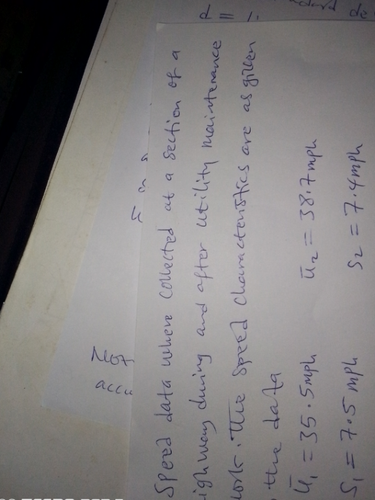 Speed data where collected at a section of a
ighway during and after utility maintenance
work. The speed characteristics are as given
the data
ū₁ = 35.5mph ū₂ = 38.7mph
S₁ = 7.5 mph S₂ = 7.4mph
Not
accu